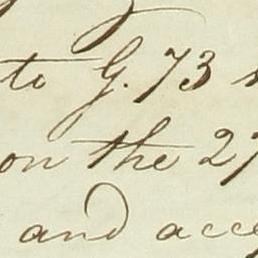 to G. 73
on the 27
and acce